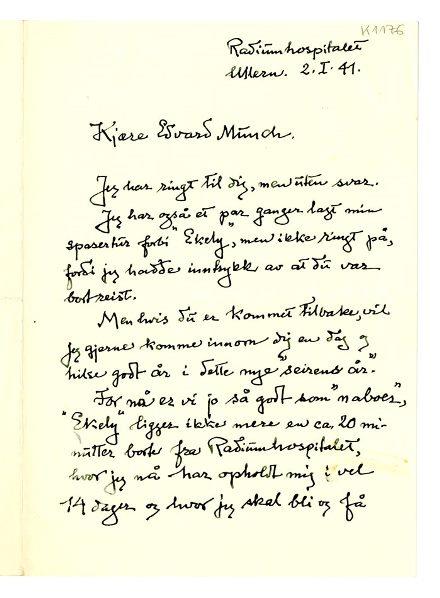 K1176
Radiumhospitalet
Ullern. 2. I. 41.
Kjære Edvard Munch.
Jeg har ringt til dig, men uten svar.
Jeg har også et par ganger lagt min
spasertur forbi "Ekely", men ikke ringt på,
fordi jeg hadde inntrykk av at du var
bortreist.
Men hvis du er kommet tilbake, vil
jeg gjerne komme innom dig en dag og
hilse godt år i dette nye "seirens år."
For nå er vi jo så godt som "naboer",
"Ekely" ligger ikke mere en ca. 20 mi-
nutter borte fra Radiumhospitalet,
hvor jeg nå har opholdt mig i vel
14 dager og hvor jeg skal bli og få